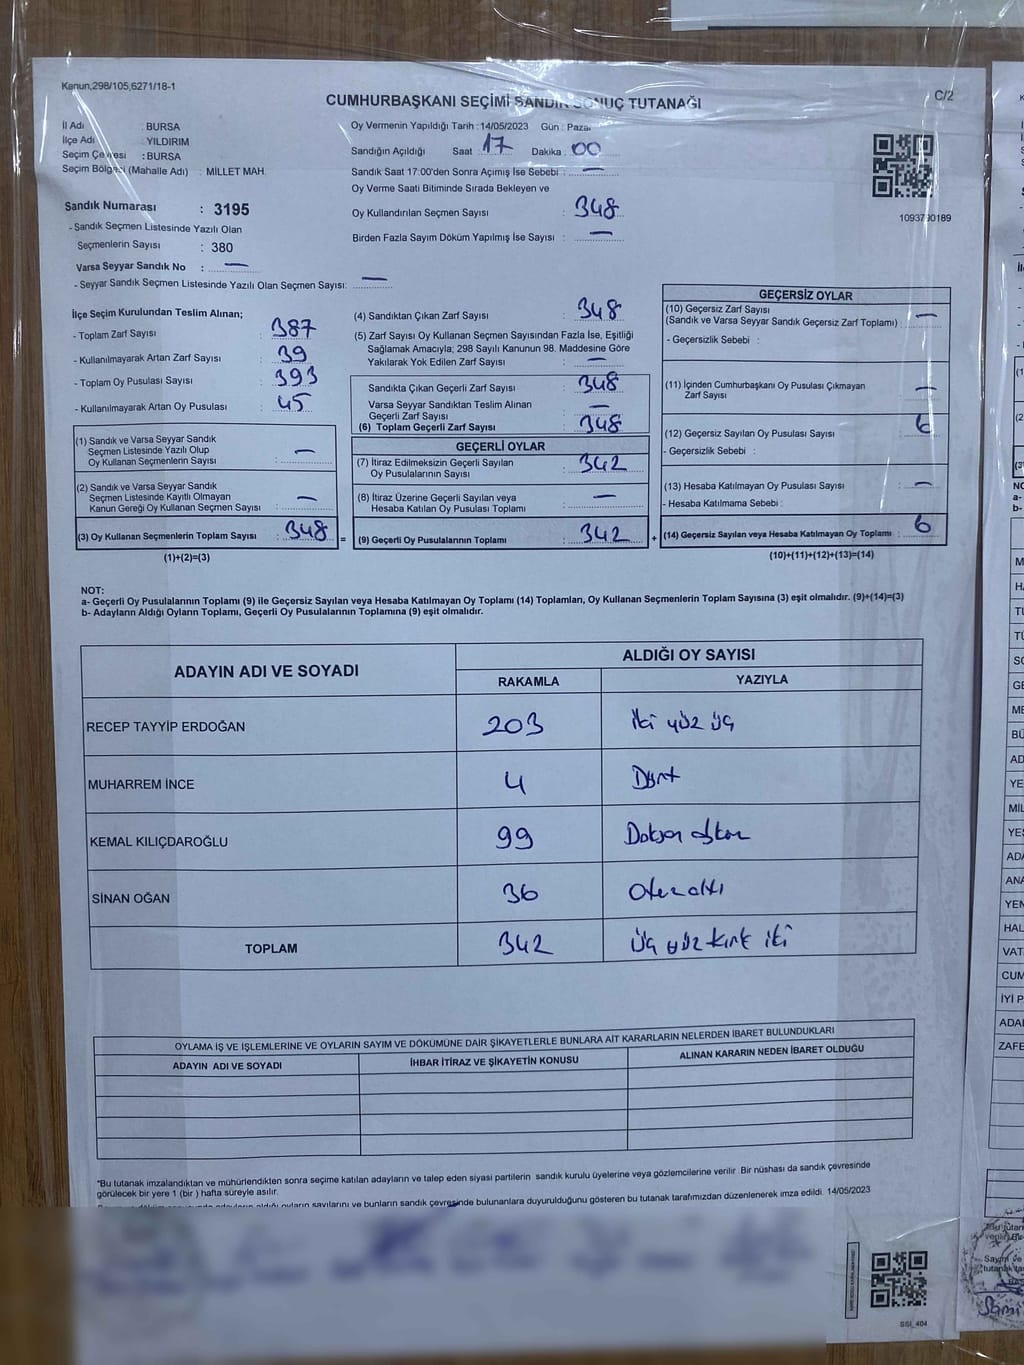 Kanun,298/105,6271/18-1
CUMHURBAŞKANI SEÇİMİ SANDIK SONUÇ TUTANAĞI
C/2
İl Adı : BURSA
İlçe Adı : YILDIRIM
Seçim Çevresi : BURSA
Seçim Bölgesi (Mahalle Adı) : MİLLET MAH.
Oy Vermenin Yapıldığı Tarih : 14/05/2023 Gün : Pazar
Sandığın Açıldığı Saat : 17 Dakika : 00
Sandık Saat 17:00'den Sonra Açımış İse Sebebi : —
Oy Verme Saati Bitiminde Sırada Bekleyen ve
Oy Kullandırılan Seçmen Sayısı : 348
Birden Fazla Sayım Döküm Yapılmış İse Sayısı : —
1093790189
Sandık Numarası : 3195
- Sandık Seçmen Listesinde Yazılı Olan
Seçmenlerin Sayısı : 380
Varsa Seyyar Sandık No : —
- Seyyar Sandık Seçmen Listesinde Yazılı Olan Seçmen Sayısı: —
İlçe Seçim Kurulundan Teslim Alınan;
- Toplam Zarf Sayısı : 387
- Kullanılmayarak Artan Zarf Sayısı : 39
- Toplam Oy Pusulası Sayısı : 393
- Kullanılmayarak Artan Oy Pusulası : 45
(1) Sandık ve Varsa Seyyar Sandık
Seçmen Listesinde Yazılı Olup
Oy Kullanan Seçmenlerin Sayısı : —
(2) Sandık ve Varsa Seyyar Sandık
Seçmen Listesinde Kayıtlı Olmayan
Kanun Gereği Oy Kullanan Seçmen Sayısı : —
(3) Oy Kullanan Seçmenlerin Toplam Sayısı : 348 =
(1)+(2)=(3)
(4) Sandıktan Çıkan Zarf Sayısı : 348
(5) Zarf Sayısı Oy Kullanan Seçmen Sayısından Fazla İse, Eşitliği
Sağlamak Amacıyla; 298 Sayılı Kanunun 98. Maddesine Göre
Yakılarak Yok Edilen Zarf Sayısı : —
Sandıkta Çıkan Geçerli Zarf Sayısı : 348
Varsa Seyyar Sandıktan Teslim Alınan
Geçerli Zarf Sayısı : —
(6) Toplam Geçerli Zarf Sayısı : 348
GEÇERLİ OYLAR
(7) İtiraz Edilmeksizin Geçerli Sayılan
Oy Pusulalarının Sayısı : 342
(8) İtiraz Üzerine Geçerli Sayılan veya
Hesaba Katılan Oy Pusulası Toplamı : —
(9) Geçerli Oy Pusulalarının Toplamı : 342 +
GEÇERSİZ OYLAR
(10) Geçersiz Zarf Sayısı
(Sandık ve Varsa Seyyar Sandık Geçersiz Zarf Toplamı) : —
- Geçersizlik Sebebi :
(11) İçinden Cumhurbaşkanı Oy Pusulası Çıkmayan
Zarf Sayısı : —
(12) Geçersiz Sayılan Oy Pusulası Sayısı : 6
- Geçersizlik Sebebi :
(13) Hesaba Katılmayan Oy Pusulası Sayısı : —
- Hesaba Katılmama Sebebi :
(14) Geçersiz Sayılan veya Hesaba Katılmayan Oy Toplamı : 6
(10)+(11)+(12)+(13)=(14)
NOT:
a- Geçerli Oy Pusulalarının Toplamı (9) ile Geçersiz Sayılan veya Hesaba Katılmayan Oy Toplamı (14) Toplamları, Oy Kullanan Seçmenlerin Toplam Sayısına (3) eşit olmalıdır. (9)+(14)=(3)
b- Adayların Aldığı Oyların Toplamı, Geçerli Oy Pusulalarının Toplamına (9) eşit olmalıdır.
ADAYIN ADI VE SOYADI
ALDIĞI OY SAYISI
RAKAMLA YAZIYLA
RECEP TAYYİP ERDOĞAN 203 İki yüz üç
MUHARREM İNCE 4 Dört
KEMAL KILIÇDAROĞLU 99 Doksan dokuz
SİNAN OĞAN 36 Otuz altı
TOPLAM 342 Üç yüz kırk iki
OYLAMA İŞ VE İŞLEMLERİNE VE OYLARIN SAYIM VE DÖKÜMÜNE DAİR ŞİKAYETLERLE BUNLARA AİT KARARLARIN NELERDEN İBARET BULUNDUKLARI
ADAYIN ADI VE SOYADI İHBAR İTİRAZ VE ŞİKAYETİN KONUSU ALINAN KARARIN NEDEN İBARET OLDUĞU
*Bu tutanak imzalandıktan ve mühürlendikten sonra seçime katılan adayların ve talep eden siyasi partilerin sandık kurulu üyelerine veya gözlemcilerine verilir. Bir nüshası da sandık çevresinde
görülecek bir yere 1 (bir ) hafta süreyle asılır.
adayların aldığı oyların sayılarını ve bunların sandık çevresinde bulunanlara duyurulduğunu gösteren bu tutanak tarafımızdan düzenlenerek imza edildi. 14/05/2023
SSİ_404